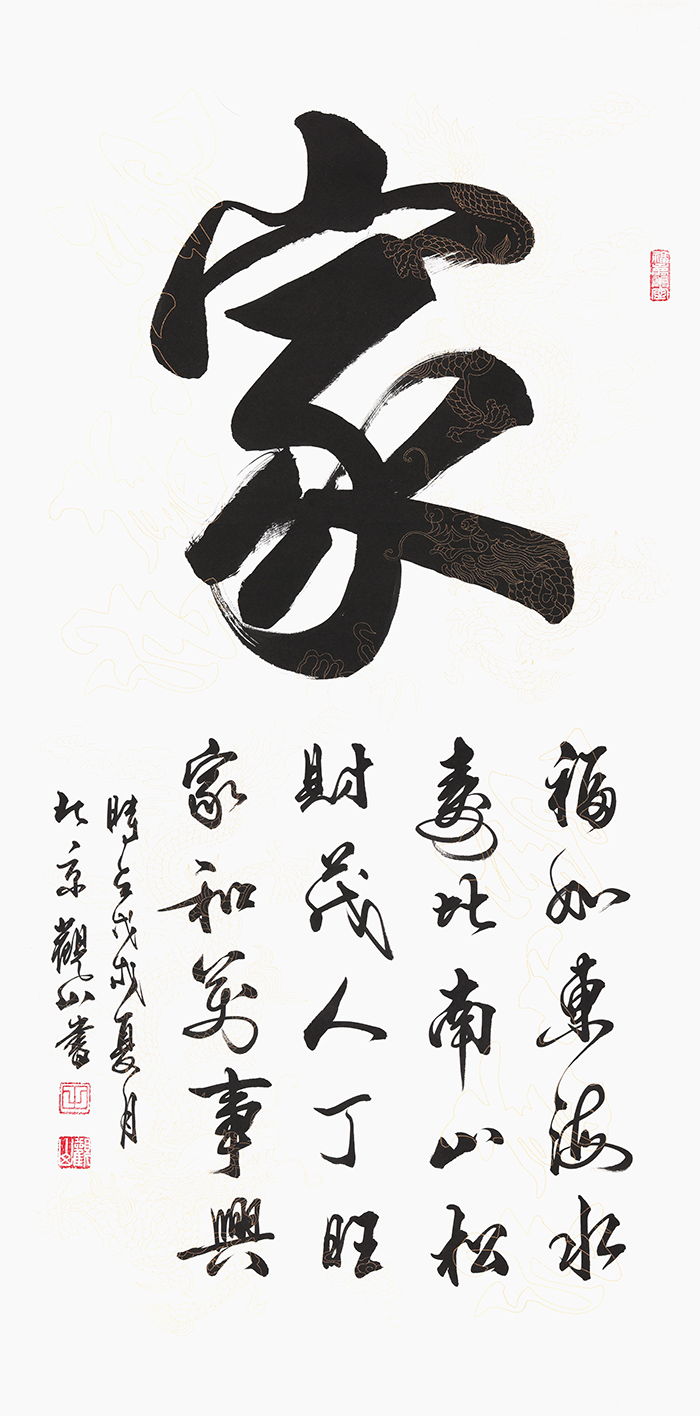 家
福如東海水
壽比南山松
財茂人丁旺
家和萬事興
時在戊戌夏月
北京觀山書
觀山